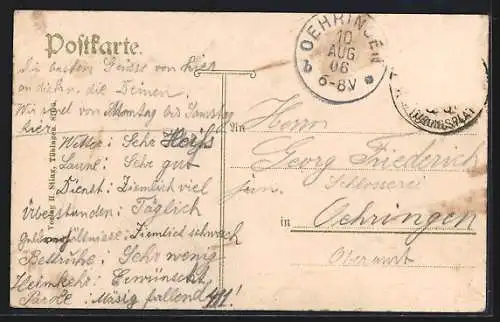 Postkarte.
Die besten Grüsse von hier
an dich u. die Deinen.
Wir sind von Montag bis Samstag
hier.
Wetter: Sehr Heiß
Laune: Sehr gut
Dienst: Ziemlich viel
Überstunden: Täglich
Geldverhältnisse: Ziemlich schwach
Bettruhe: Sehr wenig
Heimkehr: Erwünscht
Parole: Mäsig fallend !!!
Verlag H. Sting, Tübingen.
OEHRINGEN
10
AUG
06
6-8V
ÜBUNGSPLATZ
An
Herrn
Georg Friederich
Schlosserei
in Oehringen
Oberamt